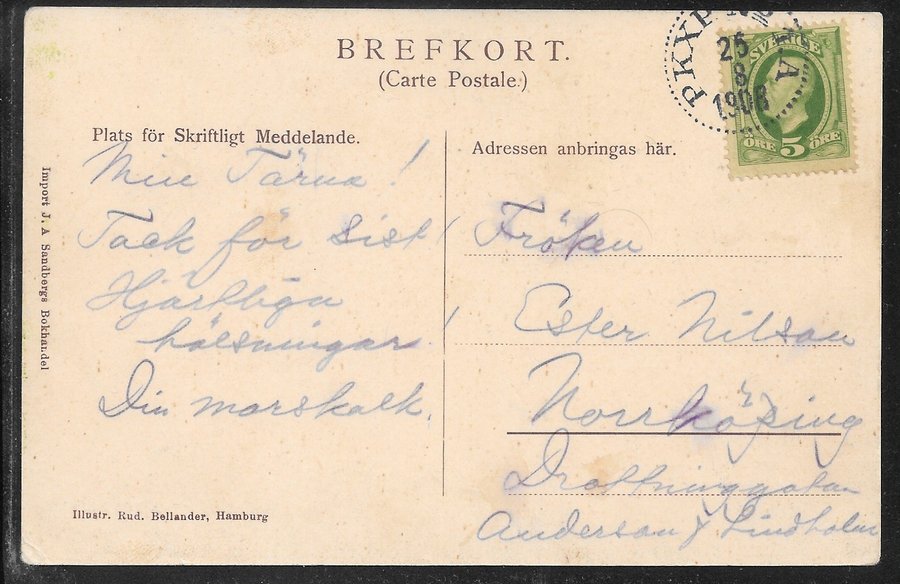 BREFKORT.
(Carte Postale.)
PKXP No A
25
8
1908
SVERIGE
ÖRE 5 ÖRE
Plats för Skriftligt Meddelande.
Min Tärna!
Tack för sist!
Hjärtliga
hälsningar!
Din marskalk.
Adressen anbringas här.
Fröken
Ester Nilson
Norrköping
Drottninggatan
Anderson & Lindholm
Import J. A Sandbergs Bokhandel
Illustr. Rud. Bellander, Hamburg